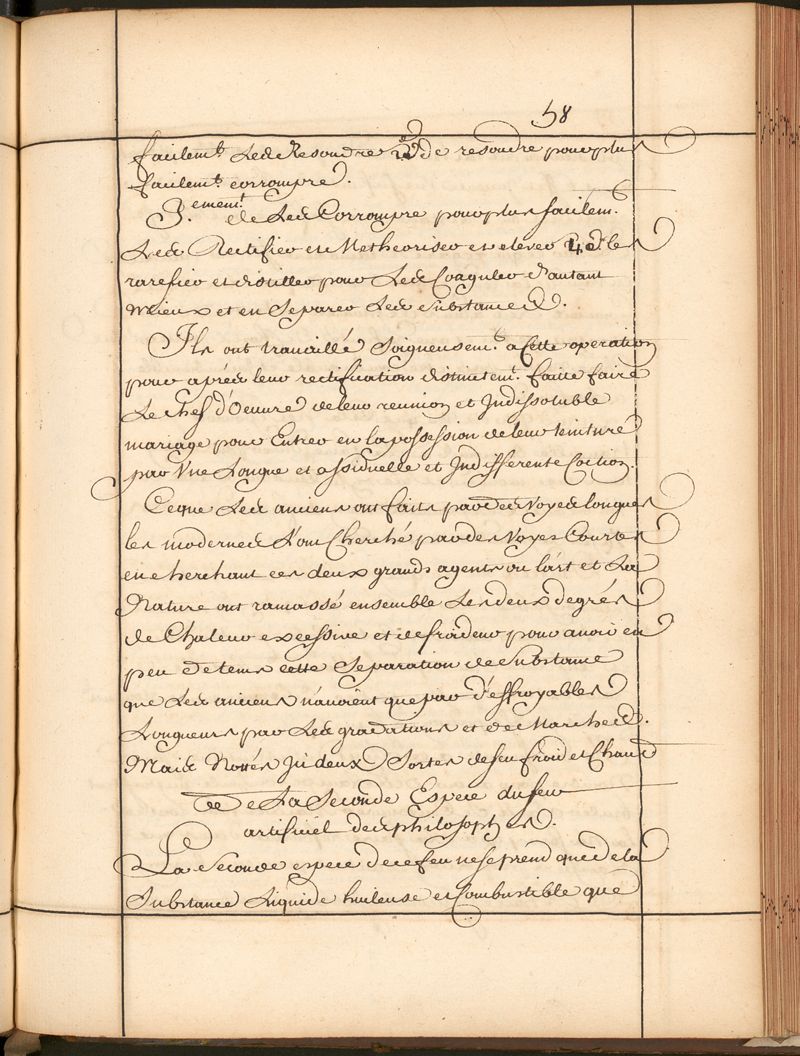 58
facilemt. Les Resoudre 2e de resoudre pour plus
facilemt. corrompre.
3.ement. de Les Corrompre pour plus facilem.t
Les Rectifier et Metheoriser et elever 4e. les
rarefier et distiller pour Les Coaguler d'autant
mieux et en Separer Les substances.
Ils ont travaillé Soigneusem.t a Cette operation
pour aprés leur rectification distinctem.t faitte faire
Le chef d'Oeuvre de leur reunion et Indissoluble
mariage pour Entrer en la possession de leur teinture
par Une Longue et assiduelle et Indifferente Coction.
Ceque Les anciens ont faits par des Voyes longues
les modernes L'ont Cherché par des Voyes Courtes
en cherchant ces deux grands agents ou l'art et La
Nature ont ramassé ensemble Les deux degrés
de Chaleur excessive et de froideur pour avoir en
peu de tems cette Separation de Substance
que Les anciens n'avoient que par d'effroyables
Longueurs par Les gradations et des Marches.
Mais Nottés Ici deux Sortes de feu froid et Chaud
De La Seconde Espece du feu
artificiel des philosophes.
La Seconde espece de ce feu ne se prend que de la
Substance Liquide huileuse et Combustible que